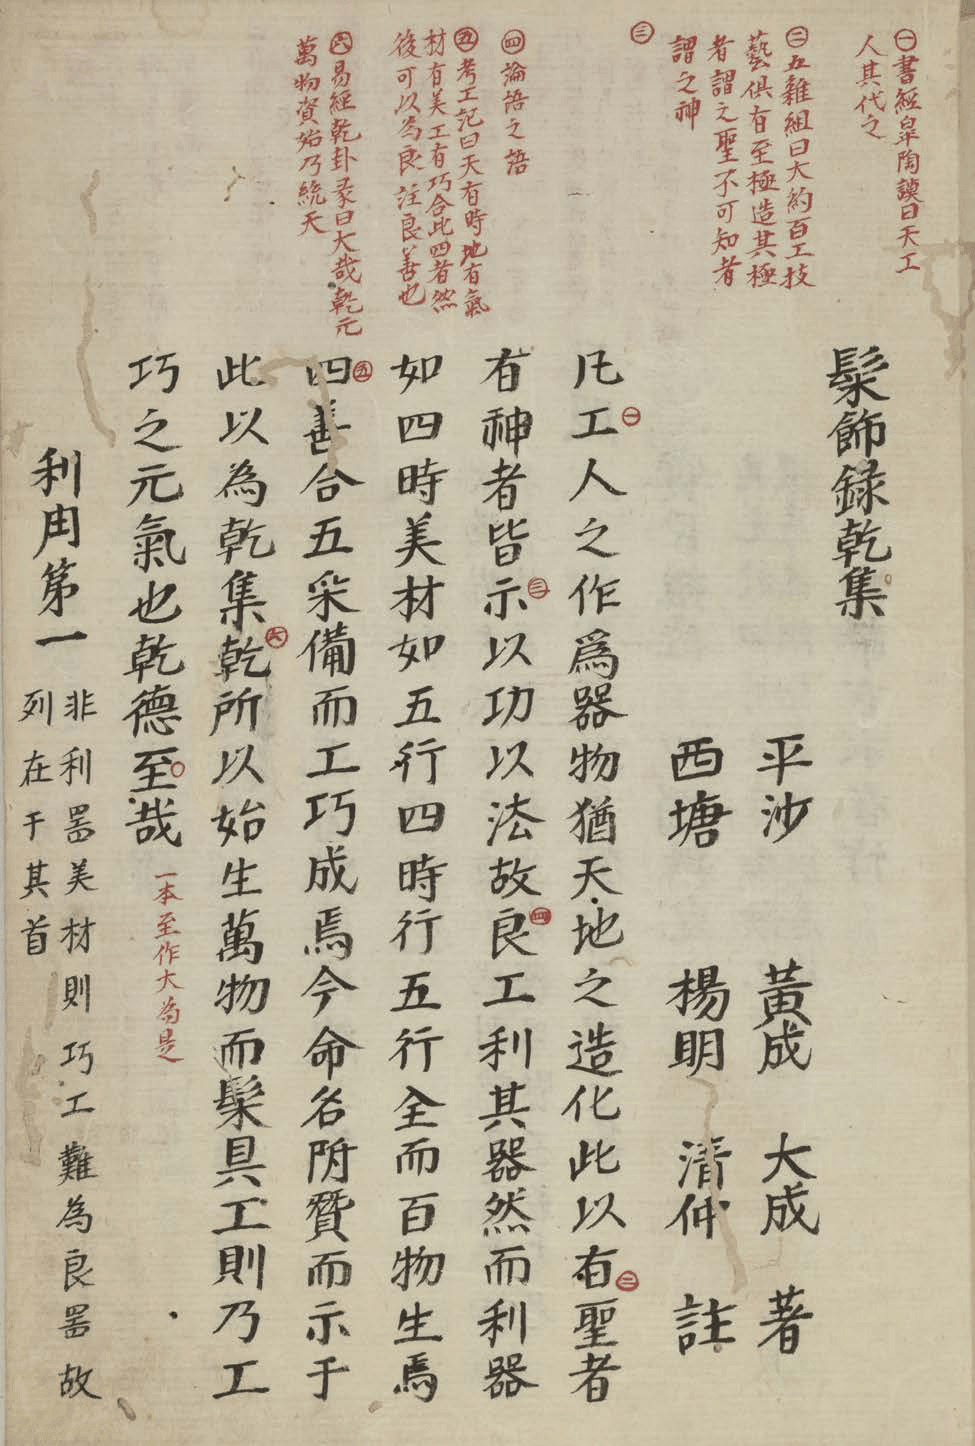 ㊀書經皐陶謨曰天工
人其代之
㊁五雜組曰大約百工技
藝俱有至極造其極
者謂之聖不可知者
謂之神
㊂
㊃論語之語
㊄考工記曰天有時地有氣
材有美工有巧合此四者然
後可以為良註良善也
㊅易經乾卦彖曰大哉乾元
萬物資始乃統天
髹飾錄乾集
平沙 黃成 大成 著
西塘 楊明 清仲 註
凡工㊀人之作爲器物猶天地之造化此以有㊁聖者
有神者皆示㊂以功以法故良㊃工利其器然而利器
如四時美材如五行四時行五行全而百物生焉
四㊄善合五采備而工巧成焉今命名附贊而示于
此以為乾集乾㊅所以始生萬物而髹具工則乃工
巧之元氣也乾德至○哉
一本至作大為是
利用第一
非利噐美材則巧工難為良噐故
列在于其首